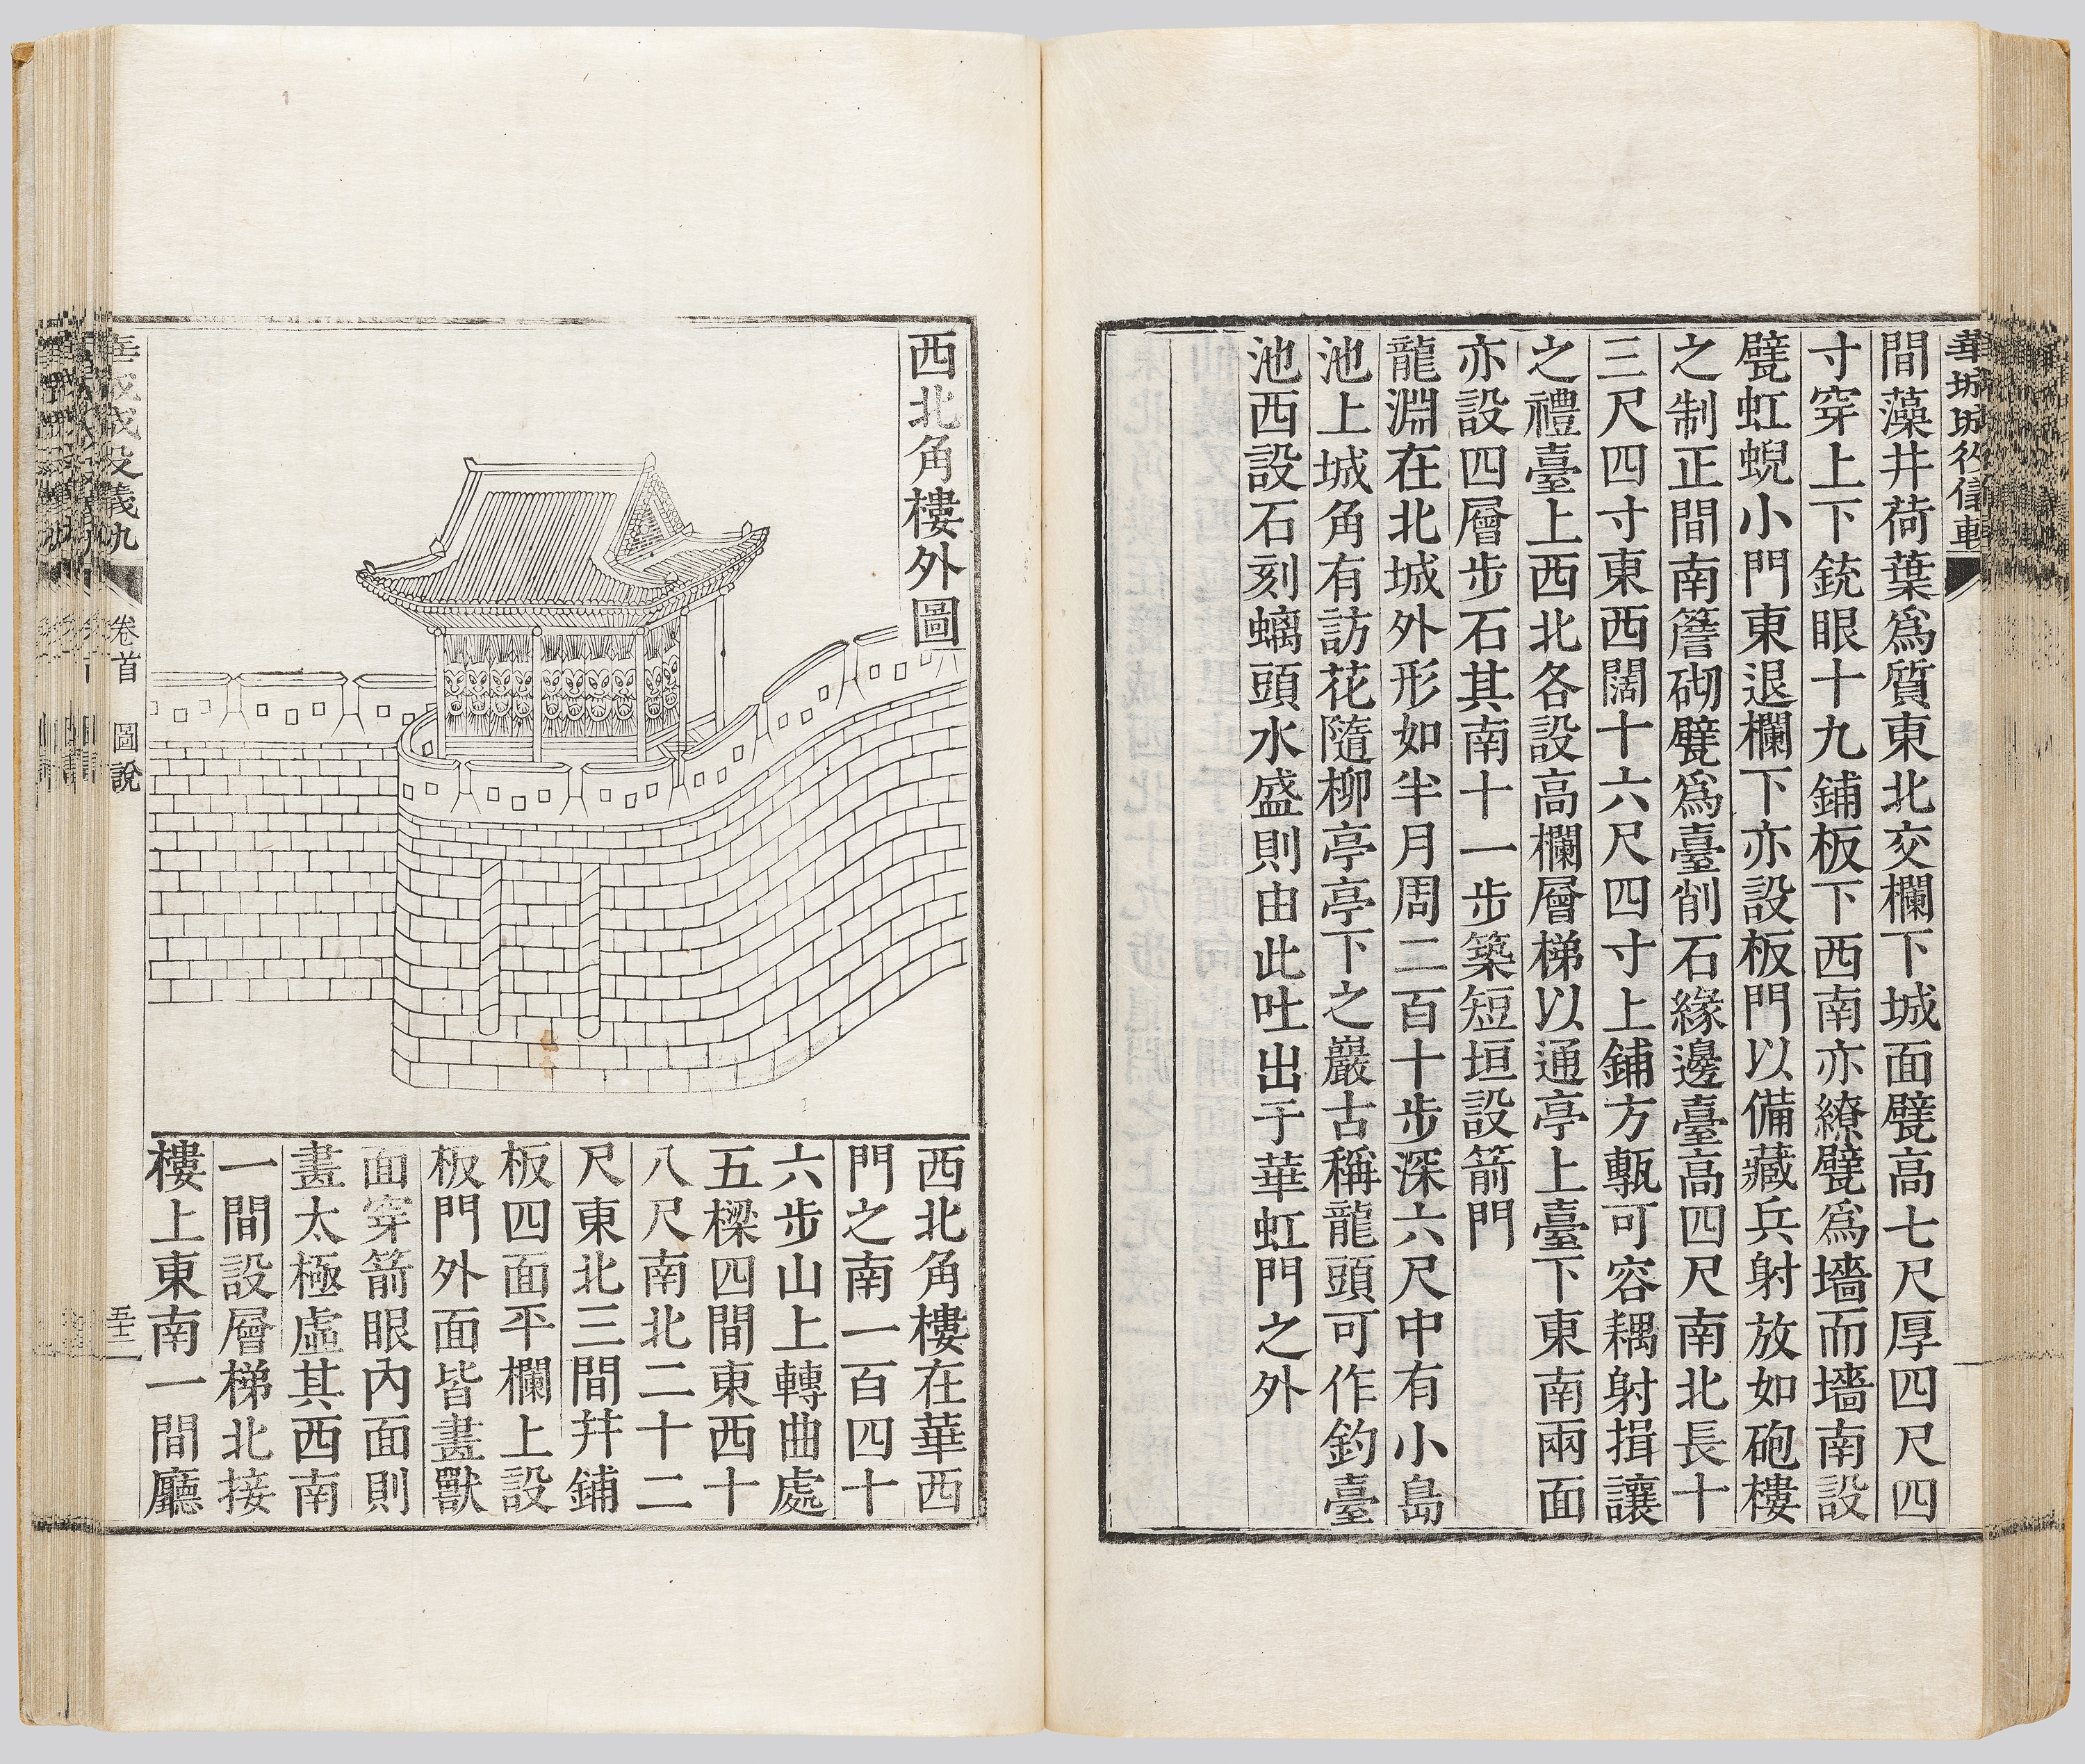 間藻井荷葉爲質東北交欄下城面甓高七尺厚四尺四
寸穿上下銃眼十九鋪板下西南亦繚甓爲墻而墻南設
甓虹蜺小門東退欄下亦設板門以備藏兵射放如砲樓
之制正間南簷砌甓爲臺削石緣邊臺高四尺南北長十
三尺四寸東西闊十六尺四寸上鋪方甎可容耦射揖讓
之禮臺上西北各設高欄層梯以通亭上臺下東南兩面
亦設四層步石其南十一步築短垣設箭門
龍淵在北城外形如半月周二百十步深六尺中有小島
池上城角有訪花隨柳亭亭下之巖古稱龍頭可作釣臺
池西設石刻螭頭水盛則由此吐出于華虹門之外
西北角樓外圖
西北角樓在華西
門之南一百四十
六步山上轉曲處
五樑四間東西十
八尺南北二十二
尺東北三間幷鋪
板四面平欄上設
板門外面皆畫獸
面穿箭眼內面則
畫太極虛其西南
一間設層梯北接
樓上東南一間廳
卷首 圖說